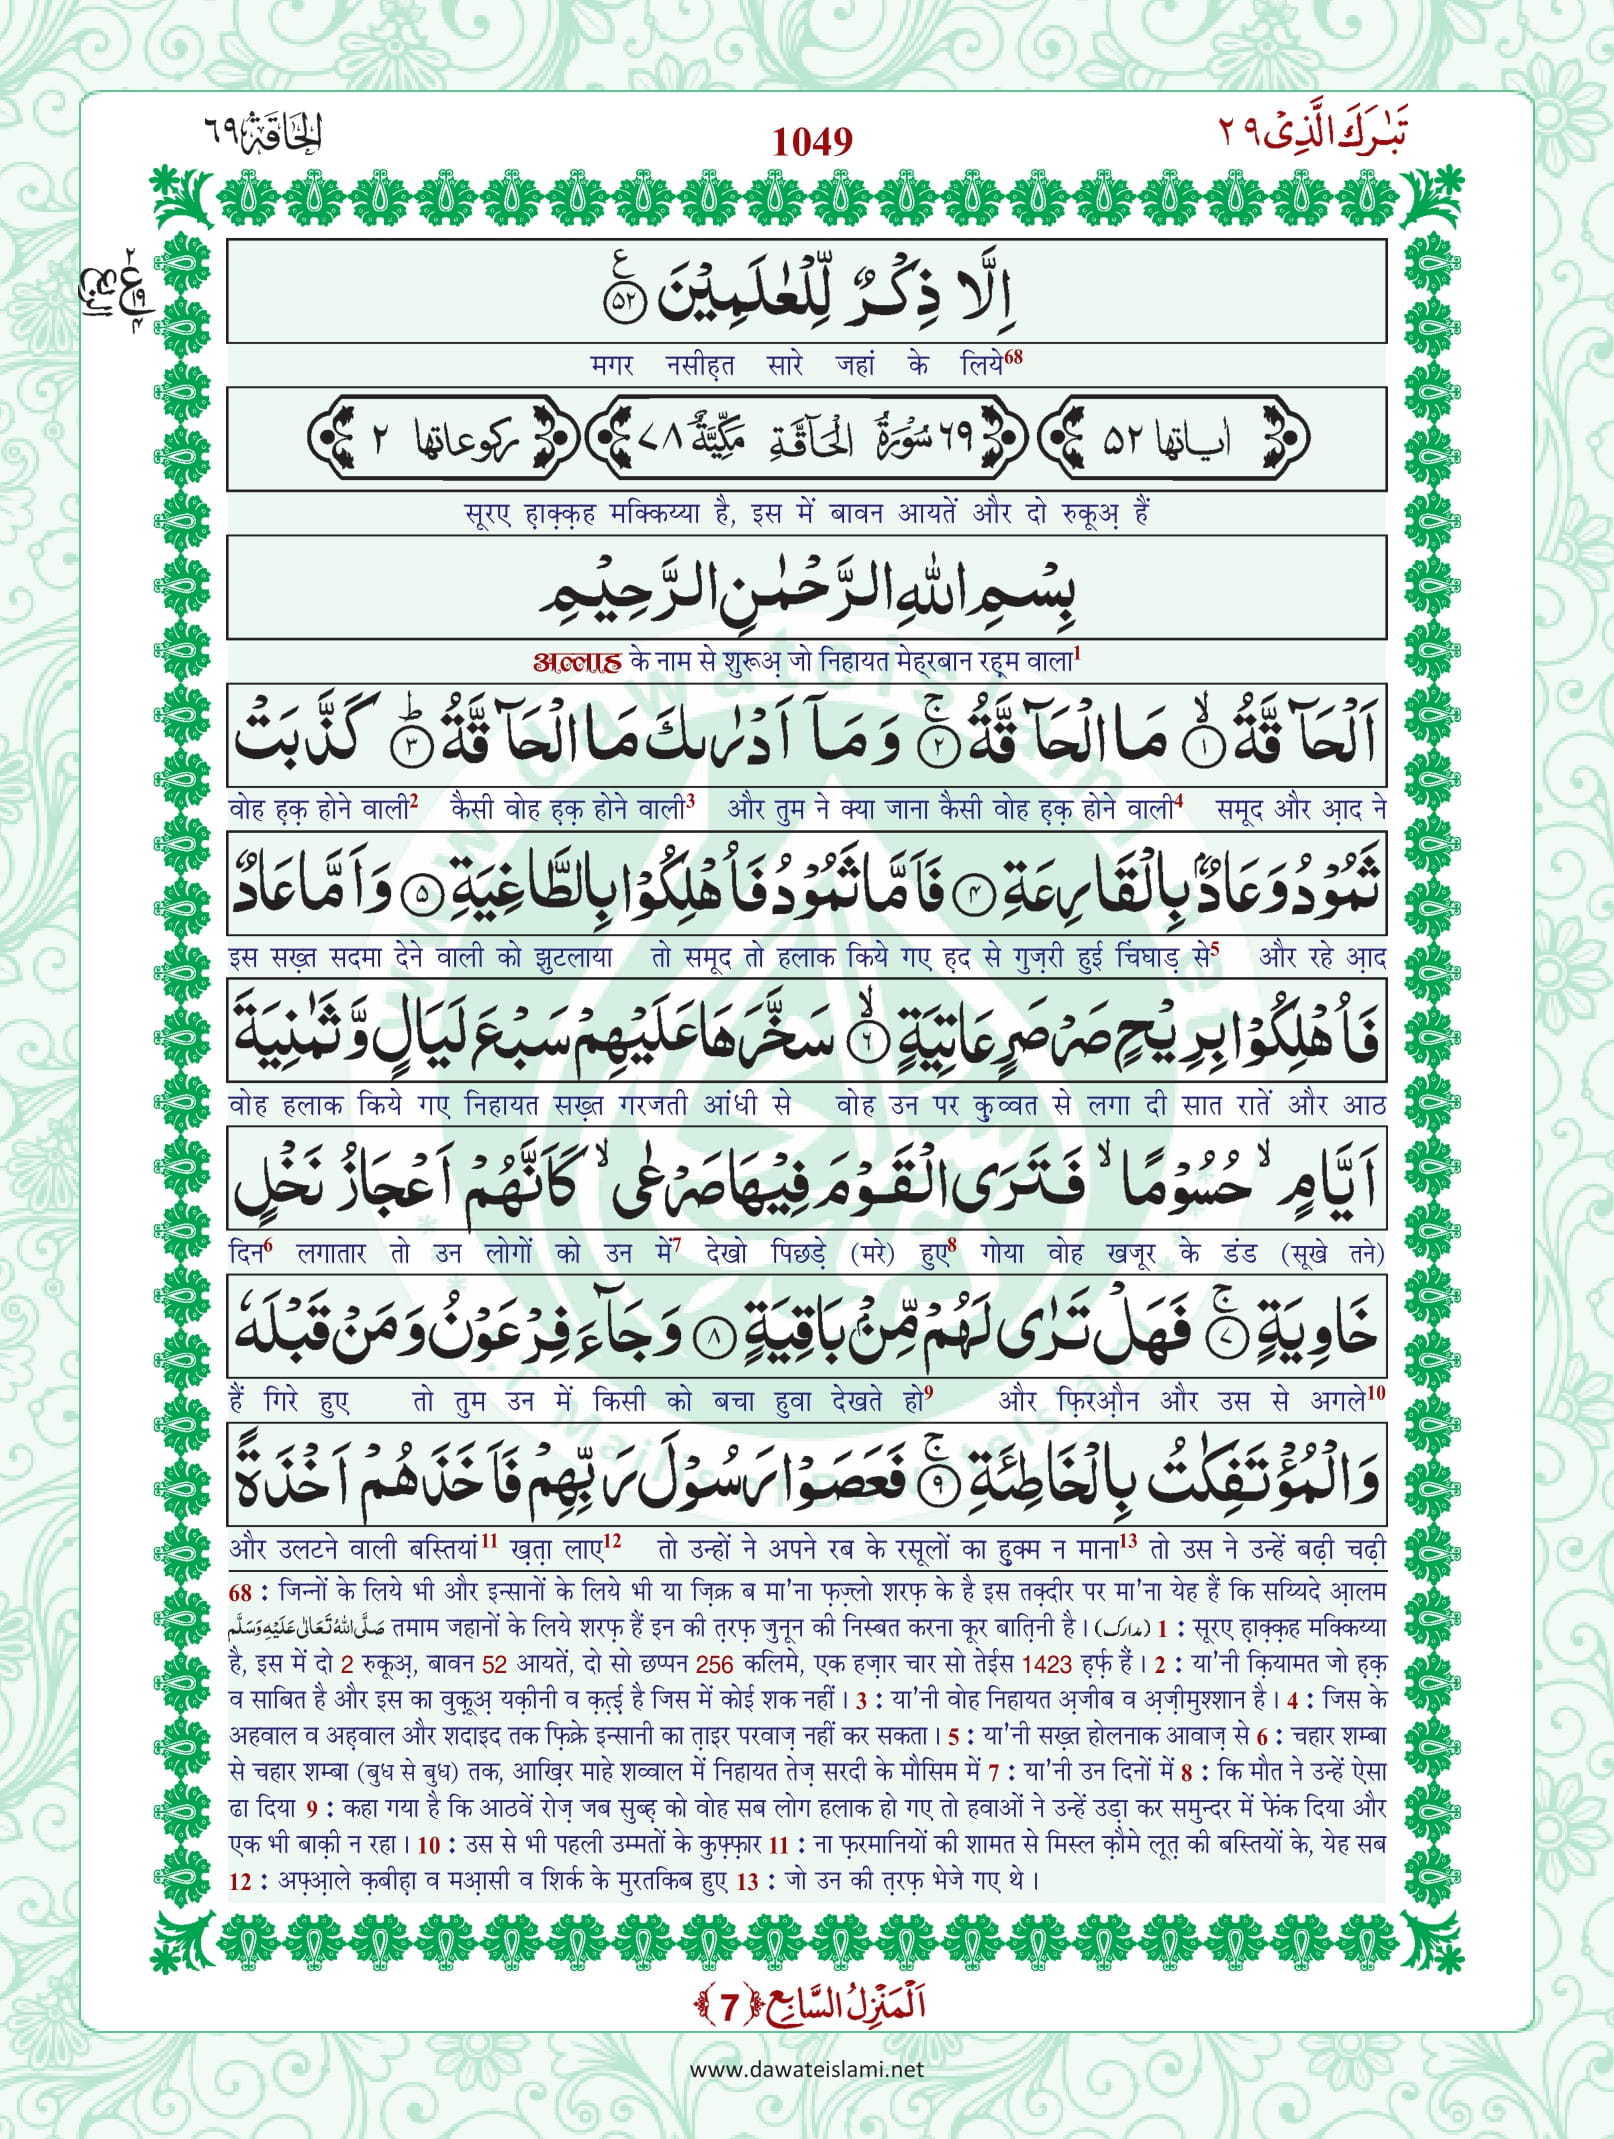 تَبٰرَكَ الَّذِیْ ٢٩
1049
الْحَآقَّة ٦٩
اِلَّا ذِكْرٌ لِّلْعٰلَمِیْنَ ﴿۵۲﴾ ع
मगर नसीह़त सारे जहां के लिये68
اٰیاتها ۵۲ ٦٩ سُوْرَةُ الْحَآقَّةِ مَكِّیَّةٌ ۷۸ ركوعاتها ۲
सूरए ह़ाक़्क़ह मक्किय्या है, इस में बावन आयतें और दो रुकूअ़ हैं
بِسْمِ اللّٰهِ الرَّحْمٰنِ الرَّحِیْمِ
अल्लाह के नाम से शुरूअ़ जो निहायत मेह्‌रबान रह़्म वाला1
اَلْحَآقَّةُ ﴿۱﴾ۙ مَا الْحَآقَّةُ ﴿۲﴾ۚ وَ مَاۤ اَدْرٰىكَ مَا الْحَآقَّةُ ﴿۳﴾ؕ كَذَّبَتْ
वोह ह़क़ होने वाली2 कैसी वोह ह़क़ होने वाली3 और तुम ने क्या जाना कैसी वोह ह़क़ होने वाली4 समूद और आ़द ने
ثَمُوْدُ وَ عَادٌۢ بِالْقَارِعَةِ ﴿۴﴾ فَاَمَّا ثَمُوْدُ فَاُهْلِكُوْا بِالطَّاغِیَةِ ﴿۵﴾ وَ اَمَّا عَادٌ
इस सख़्त सदमा देने वाली को झुटलाया तो समूद तो हलाक किये गए ह़द से गुज़री हुई चिंघाड़ से5 और रहे आ़द
فَاُهْلِكُوْا بِرِیْحٍ صَرْصَرٍ عَاتِیَةٍ ﴿۶﴾ۙ سَخَّرَهَا عَلَیْهِمْ سَبْعَ لَیَالٍ وَّ ثَمٰنِیَةَ
वोह हलाक किये गए निहायत सख़्त गरजती आंधी से वोह उन पर कुव्वत से लगा दी सात रातें और आठ
اَیَّامٍ ۙ حُسُوْمًا ۙ فَتَرَى الْقَوْمَ فِیْهَا صَرْعٰى ۙ كَاَنَّهُمْ اَعْجَازُ نَخْلٍ
दिन6 लगातार तो उन लोगों को उन में7 देखो पिछड़े (मरे) हुए8 गोया वोह खजूर के डंड (सूखे तने)
خَاوِیَةٍ ﴿۷﴾ۚ فَهَلْ تَرٰى لَهُمْ مِّنْۢ بَاقِیَةٍ ﴿۸﴾ وَ جَآءَ فِرْعَوْنُ وَ مَنْ قَبْلَهٗ
हैं गिरे हुए तो तुम उन में किसी को बचा हुवा देखते हो9 और फ़िरऔ़न और उस से अगले10
وَ الْمُؤْتَفِكٰتُ بِالْخَاطِئَةِ ﴿۹﴾ۚ فَعَصَوْا رَسُوْلَ رَبِّهِمْ فَاَخَذَهُمْ اَخْذَةً
और उलटने वाली बस्तियां11 ख़त़ा लाए12 तो उन्हों ने अपने रब के रसूलों का हुक्म न माना13 तो उस ने उन्हें बढ़ी चढ़ी
68 : जिन्नों के लिये भी और इन्सानों के लिये भी या ज़िक्र ब मा'ना फ़ज़्लो शरफ़ के है इस तक़्दीर पर मा'ना येह हैं कि सय्यिदे आ़लम
صَلَّى اللهُ تَعَالٰى عَلَیْهِ وَسَلَّم तमाम जहानों के लिये शरफ़ हैं इन की त़रफ़ जुनून की निस्बत करना कूर बात़िनी है। (مدارک) 1 : सूरए ह़ाक़्क़ह मक्किय्या
है, इस में दो 2 रुकूअ़, बावन 52 आयतें, दो सो छप्पन 256 कलिमे, एक हज़ार चार सो तेईस 1423 ह़र्फ़ हैं। 2 : या'नी क़ियामत जो ह़क़
व साबित है और इस का वुक़ूअ़ यक़ीनी व क़त़्ई़ है जिस में कोई शक नहीं। 3 : या'नी वोह निहायत अ़जीब व अ़ज़ीमुश्शान है। 4 : जिस के
अहवाल व अह़वाल और शदाइद तक फ़िक्रे इन्सानी का त़ाइर परवाज़ नहीं कर सकता। 5 : या'नी सख़्त होलनाक आवाज़ से 6 : चहार शम्बा
से चहार शम्बा (बुध से बुध) तक, आख़िर माहे शव्वाल में निहायत तेज़ सरदी के मौसिम में 7 : या'नी उन दिनों में 8 : कि मौत ने उन्हें ऐसा
ढा दिया 9 : कहा गया है कि आठवें रोज़ जब सुब्ह़ को वोह सब लोग हलाक हो गए तो हवाओं ने उन्हें उड़ा कर समुन्दर में फेंक दिया और
एक भी बाक़ी न रहा। 10 : उस से भी पहली उम्मतों के कुफ़्फ़ार 11 : ना फ़रमानियों की शामत से मिस्ल क़ौमे लूत़ की बस्तियों के, येह सब
12 : अफ़्आ़ले क़बीह़ा व मआ़सी व शिर्क के मुरतकिब हुए 13 : जो उन की त़रफ़ भेजे गए थे।
اَلْمَنْزِلُ السَّابِع ﴿7﴾
www.dawateislami.net